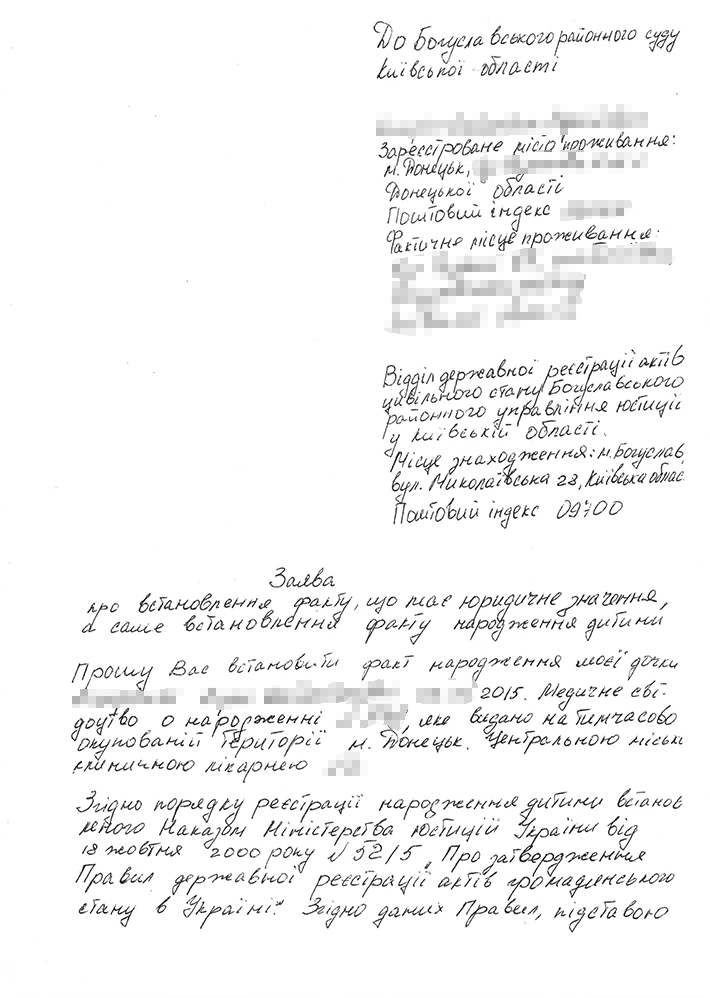 До Богуславського районного суду
Київської області
Зареєстроване місто проживання:
м. Донецьк,
Донецької області
Поштовий індекс
Фактичне місце проживання:
Відділ державної реєстрації актів
цивільного стану Богуславського
районного управління юстиції
у Київській області.
Місце знаходження: м. Богуслав,
вул. Миколаївська 28, Київська облас
Поштовий індекс 09700
Заява
про встановлення факту, що має юридичне значення,
а саме встановлення факту народження дитини
Прошу Вас встановити факт народження моєї дочки
2015. Медичне сві-
доцтво о народженні , яке видано на тимчасово
окупованій території м. Донецьк. Центральною міськ
клиничною лікарнею
Згідно порядку реєстрації народження дитини встанов
леного Наказом Міністерства юстицій України від
18 жовтня 2000 року № 52/5 „Про затвердження
Правил державної реєстрації актів громадянського
стану в Україні". Згідно даних Правил, підставою